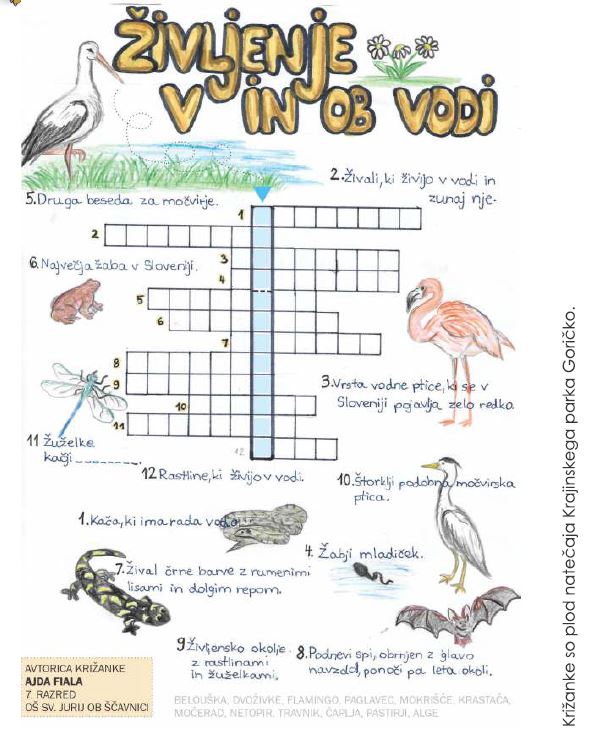 ŽIVLJENJE
V IN OB VODI
2. Živali, ki živijo v vodi in
zunaj nje.
5. Druga beseda za močvirje.
1
2
6. Največja žaba v Sloveniji.
3
4
5
6
7
8
9
3. Vrsta vodne ptice, ki se v
Sloveniji pojavlja zelo redko
10
11
11 Žuželke
kačji
12
12 Rastline, ki živijo v vodi.
10. Štorklji podobna močvirska
ptica.
1. Kača, ki ima rada vodo
4. Žabji mladiček.
7. Žival črne barve z rumenimi
lisami in dolgim repom.
9 Življensko okolje
z rastlinami
in žuželkami.
8. Podnevi spi, obrnjen z glavo
navzdol, ponoči pa leta okoli.
AVTORICA KRIŽANKE
AJDA FIALA
7. RAZRED
OŠ SV. JURIJ OB ŠČAVNICI
BELOUŠKA, DVOŽIVKE, FLAMINGO, PAGLAVEC, MOKRIŠČE, KRASTAČA,
MOČERAD, NETOPIR, TRAVNIK, ČAPLJA, PASTIRJI, ALGE
Križanke so plod natečaja Krajinskega parka Goričko.